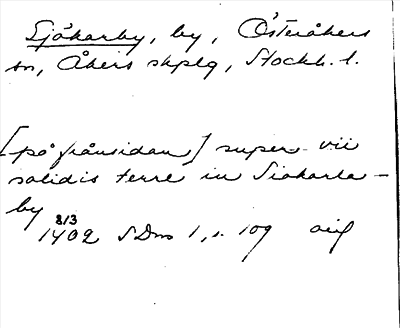 Sjökarby, by, Österåkers
sn, Åkers skplg, Stockh. l.
[på frånsidan] super vii
solidis terre in Siøkarla-
by
8/3
1402 SDns 1, s. 109 orig